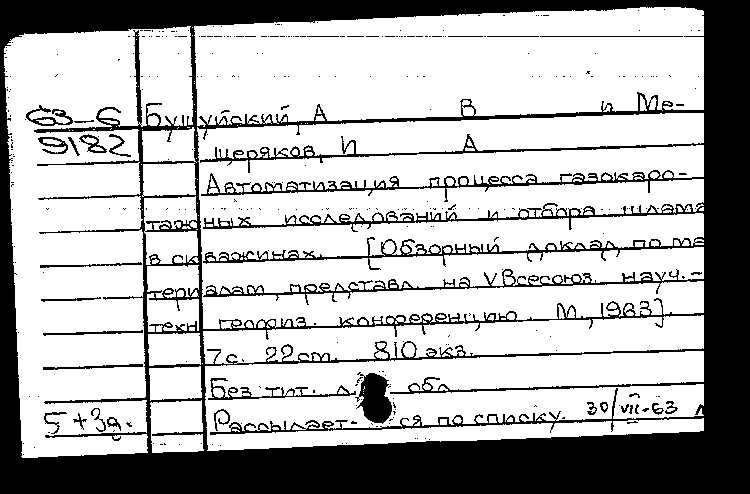 63-6 Бушуйский, А В и Ме-
9182 щеряков, И А
Автоматизация процесса газокаро-
тажных исследований и отбора шлама
в скважинах. [Обзорный доклад по ма
териалам, представл. на V Всесоюз. науч.-
техн геофиз. конференцию. М., 1963].
7с. 22см. 810 экз.
Без тит. л. обл
5+3д. Рассылает-ся по списку. 30/VII-63